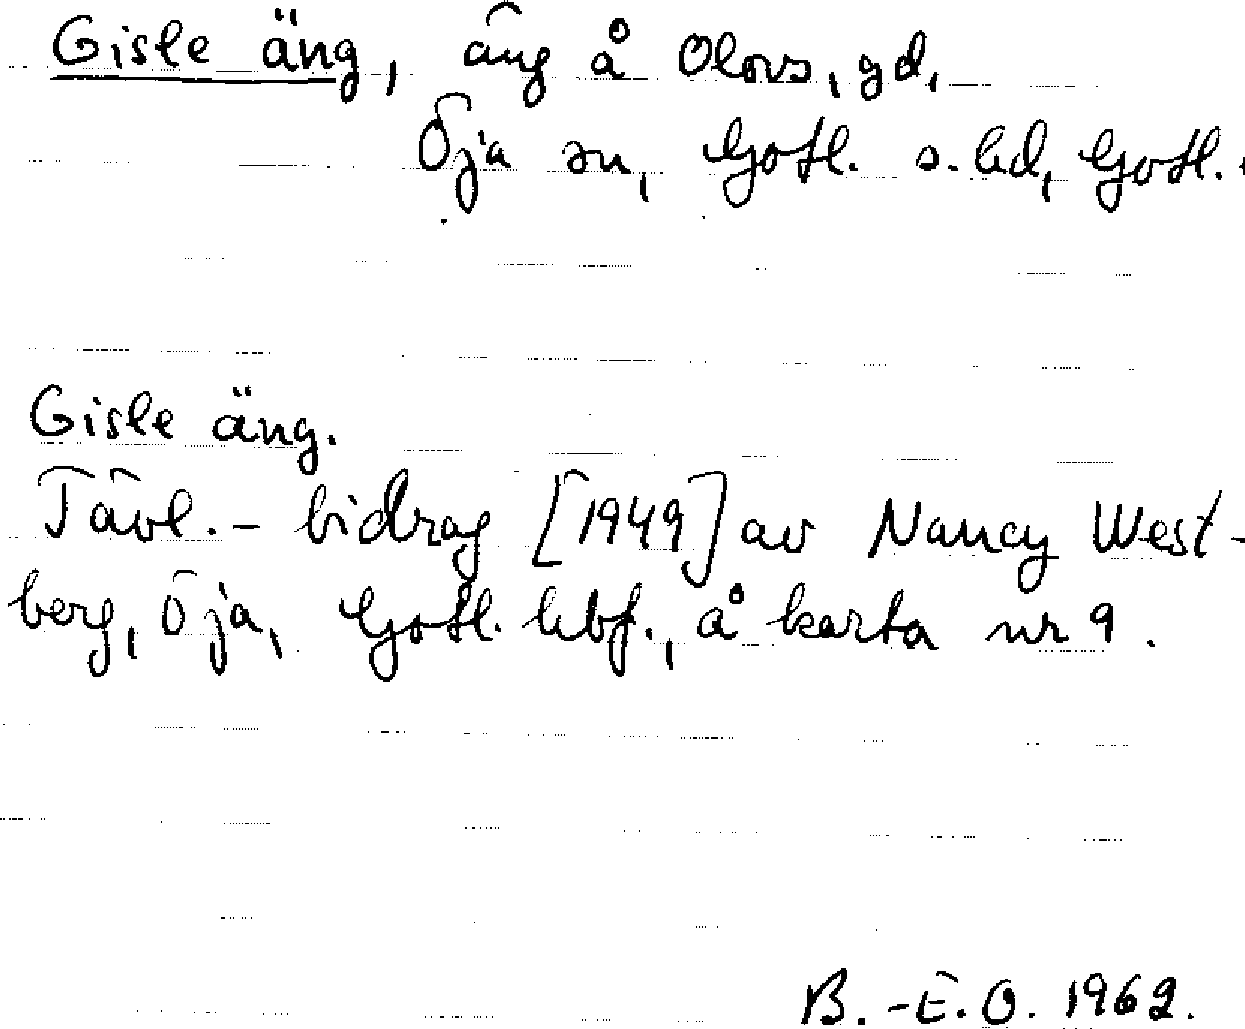 Gisle äng, äng å Olovs, gd,
Öja sn, Gotl. s. hd, Gotl.
Gisle äng.
Tävl.- bidrag [1949] av Nancy West-
berg, Öja, Gotl. hbf., å karta nr 9.
B.-E.O. 1962.